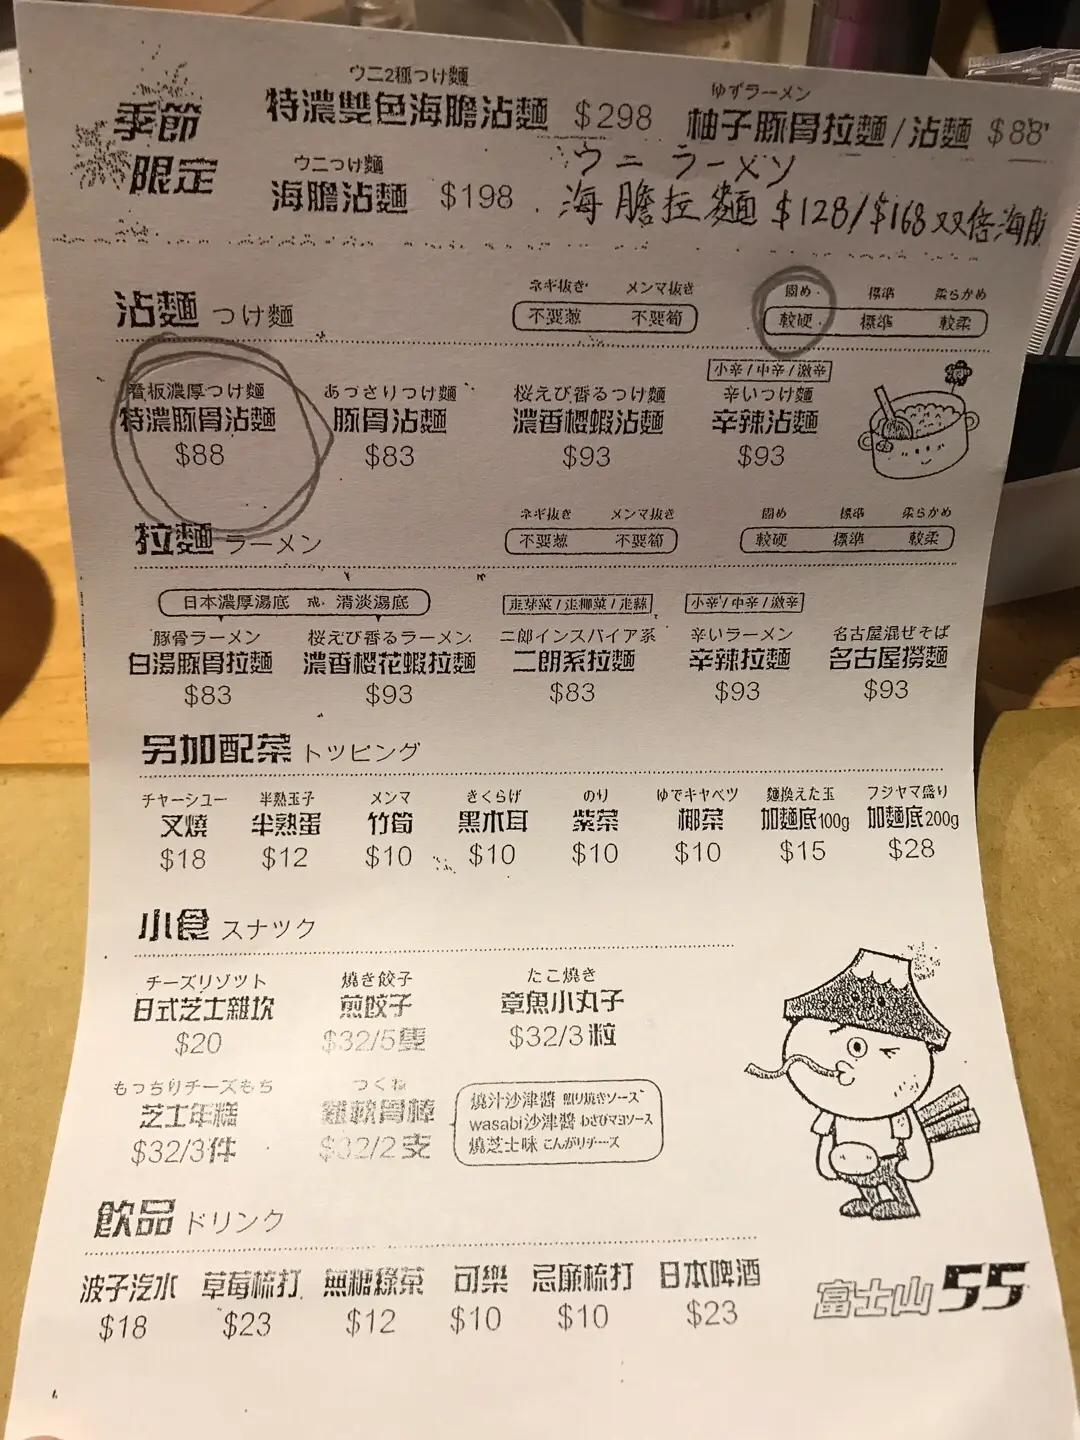 季節
限定
ウニ2種つけ麵
特濃雙色海膽沾麵 $298
ゆずラーメン
柚子豚骨拉麵/沾麵 $88
ウニつけ麵
海膽沾麵 $198
ウニ ラーメン
海膽拉麵 $128/$168 双倍海胆
沾麵 つけ麵
ネギ抜き メンマ抜き
不要葱 不要筍
固め 標準 柔らかめ
較硬 標準 較柔
小辛/中辛/激辛
看板濃厚つけ麵 あづさりつけ麵 桜えび香るつけ麵 辛いつけ麵
特濃豚骨沾麵 豚骨沾麵 濃香櫻蝦沾麵 辛辣沾麵
$88 $83 $93 $93
拉麵 ラーメン
ネギ抜き メンマ抜き
不要葱 不要筍
固め 標準 柔らかめ
較硬 標準 較柔
日本濃厚湯底 或 清淡湯底
走芽菜/走椰菜/走蒜
小辛/中辛/激辛
豚骨ラーメン 桜えび香るラーメン 二郎インスパイア系 辛いラーメン 名古屋混ぜそば
白湯豚骨拉麵 濃香櫻花蝦拉麵 二朗系拉麵 辛辣拉麵 名古屋撈麵
$83 $93 $83 $93 $93
另加配菜 トッピング
チャーシュー 半熟玉子 メンマ きくらげ のり ゆでキャベツ 麵換えた玉 フジヤマ盛り
叉燒 半熟蛋 竹筍 黑木耳 紫菜 椰菜 加麵底100g 加麵底200g
$18 $12 $10 $10 $10 $10 $15 $28
小食 スナック
チーズリゾット 燒き餃子 たこ燒き
日式芝士雜炊 煎餃子 章魚小丸子
$20 $32/5隻 $32/3粒
もっちりチーズもち つくね
芝士年糕 雞軟骨棒
$32/3件 $32/2支
燒汁沙津醬 照り焼きソース
wasabi沙津醬 わさびマヨソース
燒芝士味 こんがりチーズ
飲品 ドリンク
波子汽水 草莓梳打 無糖綠茶 可樂 忌廉梳打 日本啤酒
$18 $23 $12 $10 $10 $23
富士山55